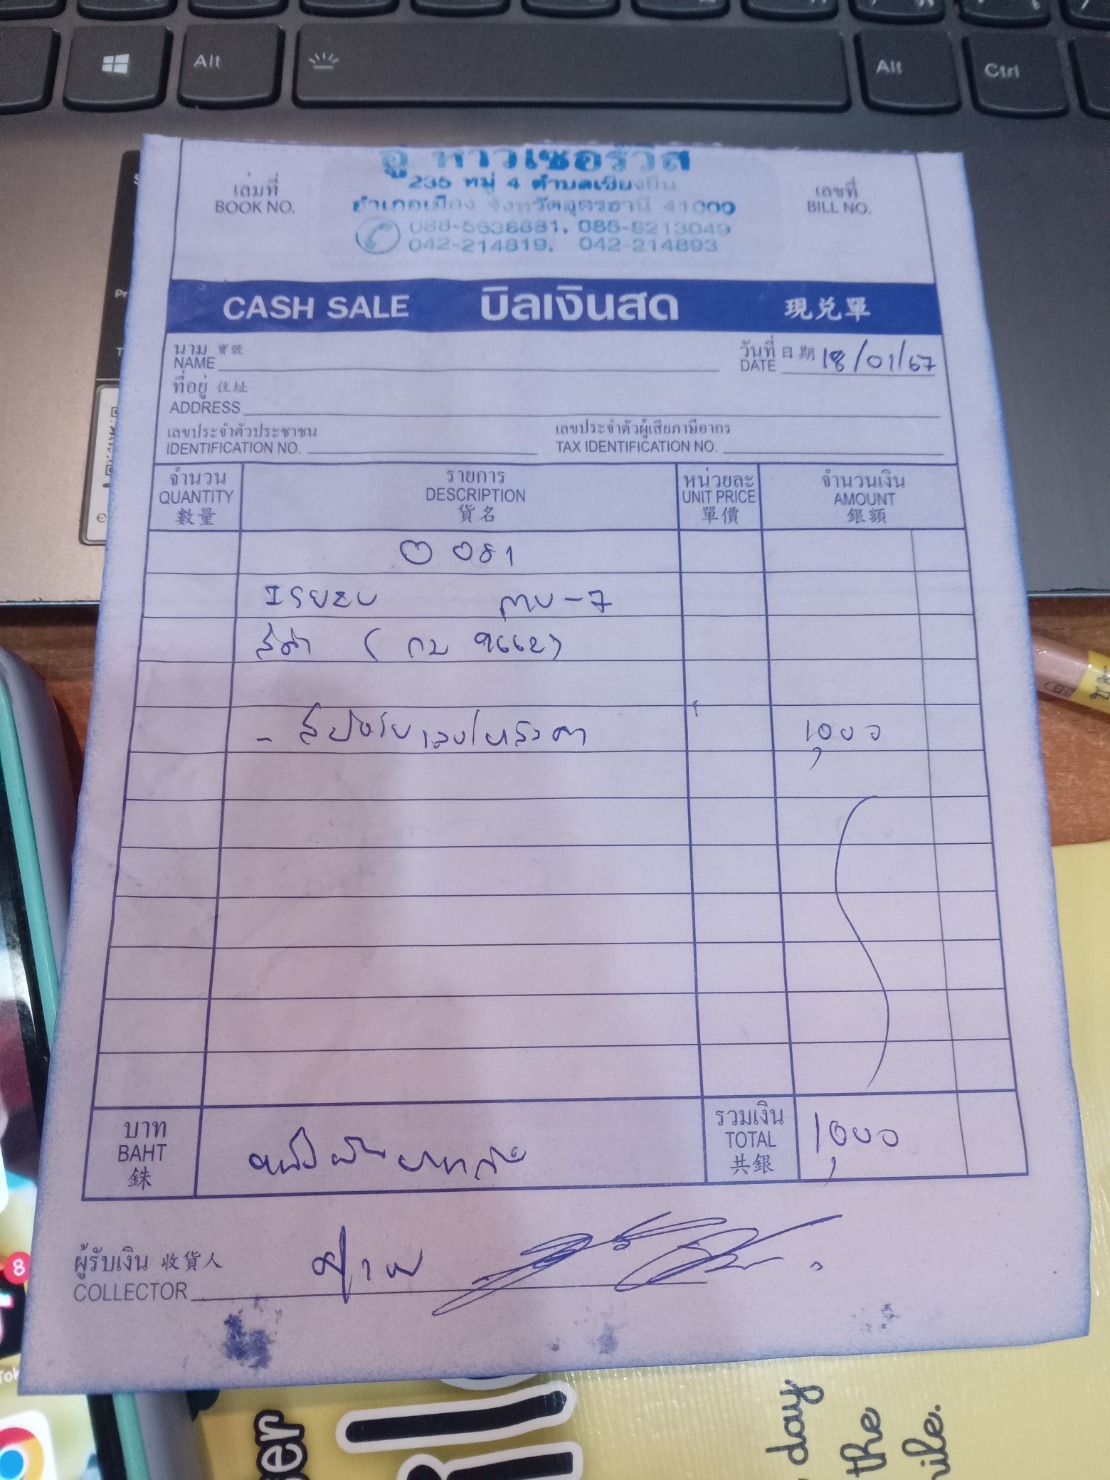 Alt
Alt
Ctrl
อู่ หาวเซอร์วิส
235 หมู่ 4 ตำบลเชียงยืน
อำเภอเมือง จังหวัดอุดรธานี 41000
085-8213049
042-214819, 042-214893
เล่มที่
BOOK NO.
เลขที่
BILL NO.
CASH SALE บิลเงินสด 現兌單
นาม 寶號
NAME
วันที่ 日期 18/01/67
DATE
ที่อยู่ 住址
ADDRESS
เลขประจำตัวประชาชน
IDENTIFICATION NO.
เลขประจำตัวผู้เสียภาษีอากร
TAX IDENTIFICATION NO.
จำนวน
QUANTITY
數量
รายการ
DESCRIPTION
貨名
หน่วยละ
UNIT PRICE
單價
จำนวนเงิน
AMOUNT
銀額
081
ISUZU MU-7
สีดำ (กม 9662)
1,000
บาท
BAHT
銖
หนึ่งพันบาทถ้วน
รวมเงิน
TOTAL
共銀
1,000
ผู้รับเงิน 收貨人
COLLECTOR
8
day
the